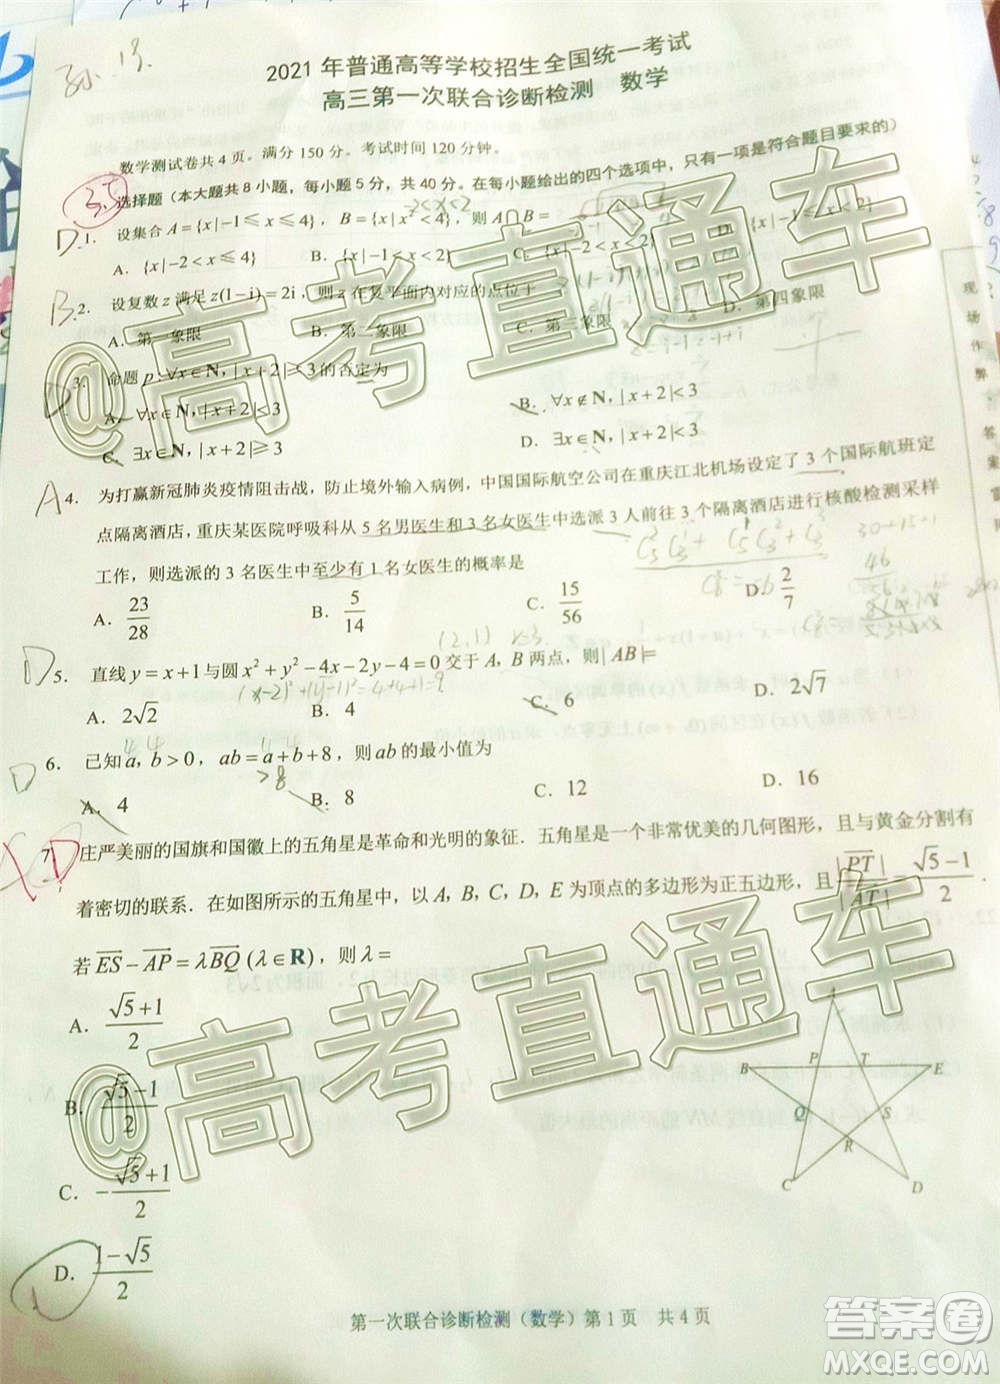 2021 年普通高等学校招生全国统一考试
高三第一次联合诊断检测 数学
数学测试卷共 4 页。满分 150 分。考试时间 120 分钟。
3.5
选择题（本大题共 8 小题，每小题 5 分，共 40 分。在每小题给出的四个选项中，只有一项是符合题目要求的）
-2<x<2
D 1. 设集合 A={x|-1≤x≤4}，B={x|x²<4}，则 A∩B=
A. {x|-2<x≤4} B. {x|-1≤x<2}
B 2. 设复数 z 满足 z(1-i)=2i，则 z 在复平面内对应的点位于
A. 第一象限 B. 第二象限 C. 第三象限 D. 第四象限
D 3. 命题 p:∀x∈N, |x+2|≥3 的否定为
A. ∀x∈N, |x+2|<3 B. ∀x∉N, |x+2|<3
C. ∃x∈N, |x+2|≥3 D. ∃x∈N, |x+2|<3
A 4. 为打赢新冠肺炎疫情阻击战，防止境外输入病例，中国国际航空公司在重庆江北机场设定了 3 个国际航班定
点隔离酒店，重庆某医院呼吸科从 5 名男医生和 3 名女医生中选派 3 人前往 3 个隔离酒店进行核酸检测采样
工作，则选派的 3 名医生中至少有 1 名女医生的概率是
30+15+1
46
56
A. 23/28 B. 5/14 C. 15/56 D. 2/7
(2,1) r=3
D 5. 直线 y=x+1 与圆 x²+y²-4x-2y-4=0 交于 A, B 两点，则|AB|=
(x-2)²+(y-1)²=4+4+1=9
A. 2√2 B. 4 C. 6 D. 2√7
4 4 4 4
D 6. 已知 a, b>0，ab=a+b+8，则 ab 的最小值为
>8
A. 4 B. 8 C. 12 D. 16
D 7. 庄严美丽的国旗和国徽上的五角星是革命和光明的象征. 五角星是一个非常优美的几何图形，且与黄金分割有
着密切的联系. 在如图所示的五角星中，以 A, B, C, D, E 为顶点的多边形为正五边形，且 |PT|/|AT|=(√5-1)/2.
若 ES-AP=λBQ (λ∈R)，则 λ=
A. (√5+1)/2
B. (√5-1)/2
C. -(√5+1)/2
D. (1-√5)/2
B P T E
Q S
R
C D
@高考直通车
@高考直通车
现场作弊
答案
第一次联合诊断检测（数学）第 1 页 共 4 页
答案圈
MXQE.COM